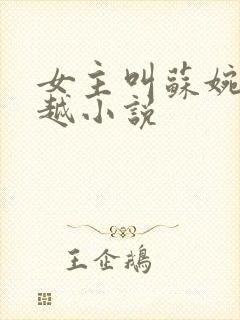 女主叫蘇婉
越小説
王企鵝